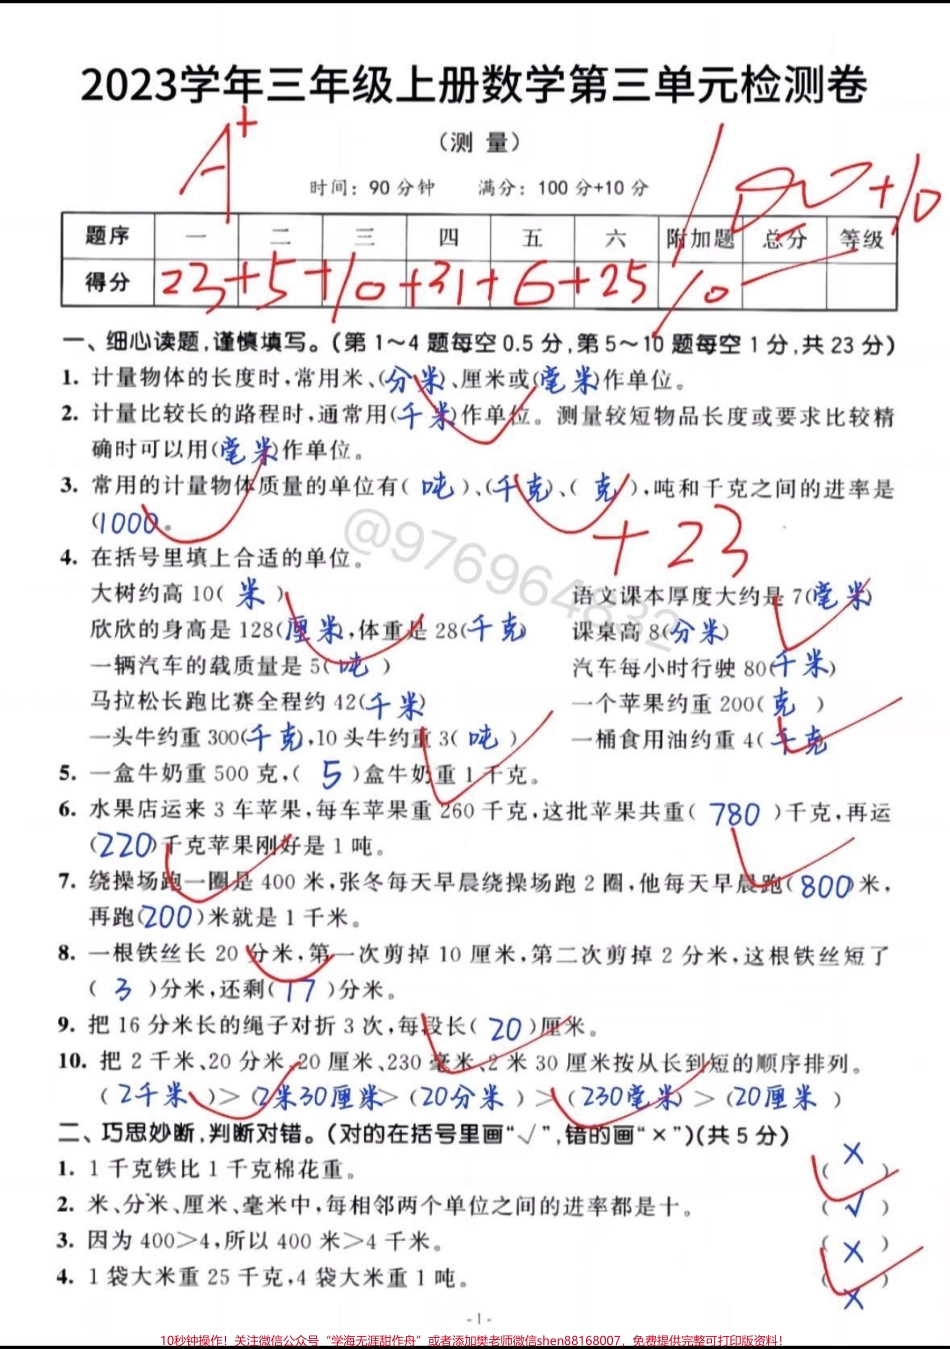 2023学年三年级上册数学第三单元检测卷
(测 量)
A+
100+10
时间：90分钟 满分：100分+10分
题序 一 二 三 四 五 六 附加题 总分 等级
得分 23+5+10+31+6+25 10
一、细心读题,谨慎填写。(第1～4题每空0.5分,第5～10题每空1分,共23分)
1. 计量物体的长度时,常用米、(分米)、厘米或(毫米)作单位。
2. 计量比较长的路程时,通常用(千米)作单位。测量较短物品长度或要求比较精
确时可以用(毫米)作单位。
3. 常用的计量物体质量的单位有( 吨 )、(千克)、( 克 ),吨和千克之间的进率是
(1000)。
+23
@976964832
4. 在括号里填上合适的单位。
大树约高10( 米 ) 语文课本厚度大约是7(毫米)
欣欣的身高是128(厘米),体重是28(千克) 课桌高8(分米)
一辆汽车的载质量是5( 吨 ) 汽车每小时行驶80(千米)
马拉松长跑比赛全程约42(千米) 一个苹果约重200( 克 )
一头牛约重300(千克),10头牛约重3( 吨 ) 一桶食用油约重4(千克)
5. 一盒牛奶重500克,( 5 )盒牛奶重1千克。
6. 水果店运来3车苹果,每车苹果重260千克,这批苹果共重( 780 )千克,再运
(220)千克苹果刚好是1吨。
7. 绕操场跑一圈是400米,张冬每天早晨绕操场跑2圈,他每天早晨跑(800)米,
再跑(200)米就是1千米。
8. 一根铁丝长20分米,第一次剪掉10厘米,第二次剪掉2分米,这根铁丝短了
( 3 )分米,还剩( 17 )分米。
9. 把16分米长的绳子对折3次,每段长( 20 )厘米。
10. 把2千米、20分米、20厘米、230毫米、2米30厘米按从长到短的顺序排列。
( 2千米 )>(2米30厘米)>(20分米 )>(230毫米)>(20厘米 )
二、巧思妙断,判断对错。(对的在括号里画“√”,错的画“×”)(共5分)
1. 1千克铁比1千克棉花重。 ( × )
2. 米、分米、厘米、毫米中,每相邻两个单位之间的进率都是十。 ( √ )
3. 因为400>4,所以400米>4千米。 ( × )
4. 1袋大米重25千克,4袋大米重1吨。 ( × )
- 1 -
10秒钟操作！关注微信公众号“学海无涯甜作舟”或者添加樊老师微信shen88168007，免费提供完整可打印版资料！